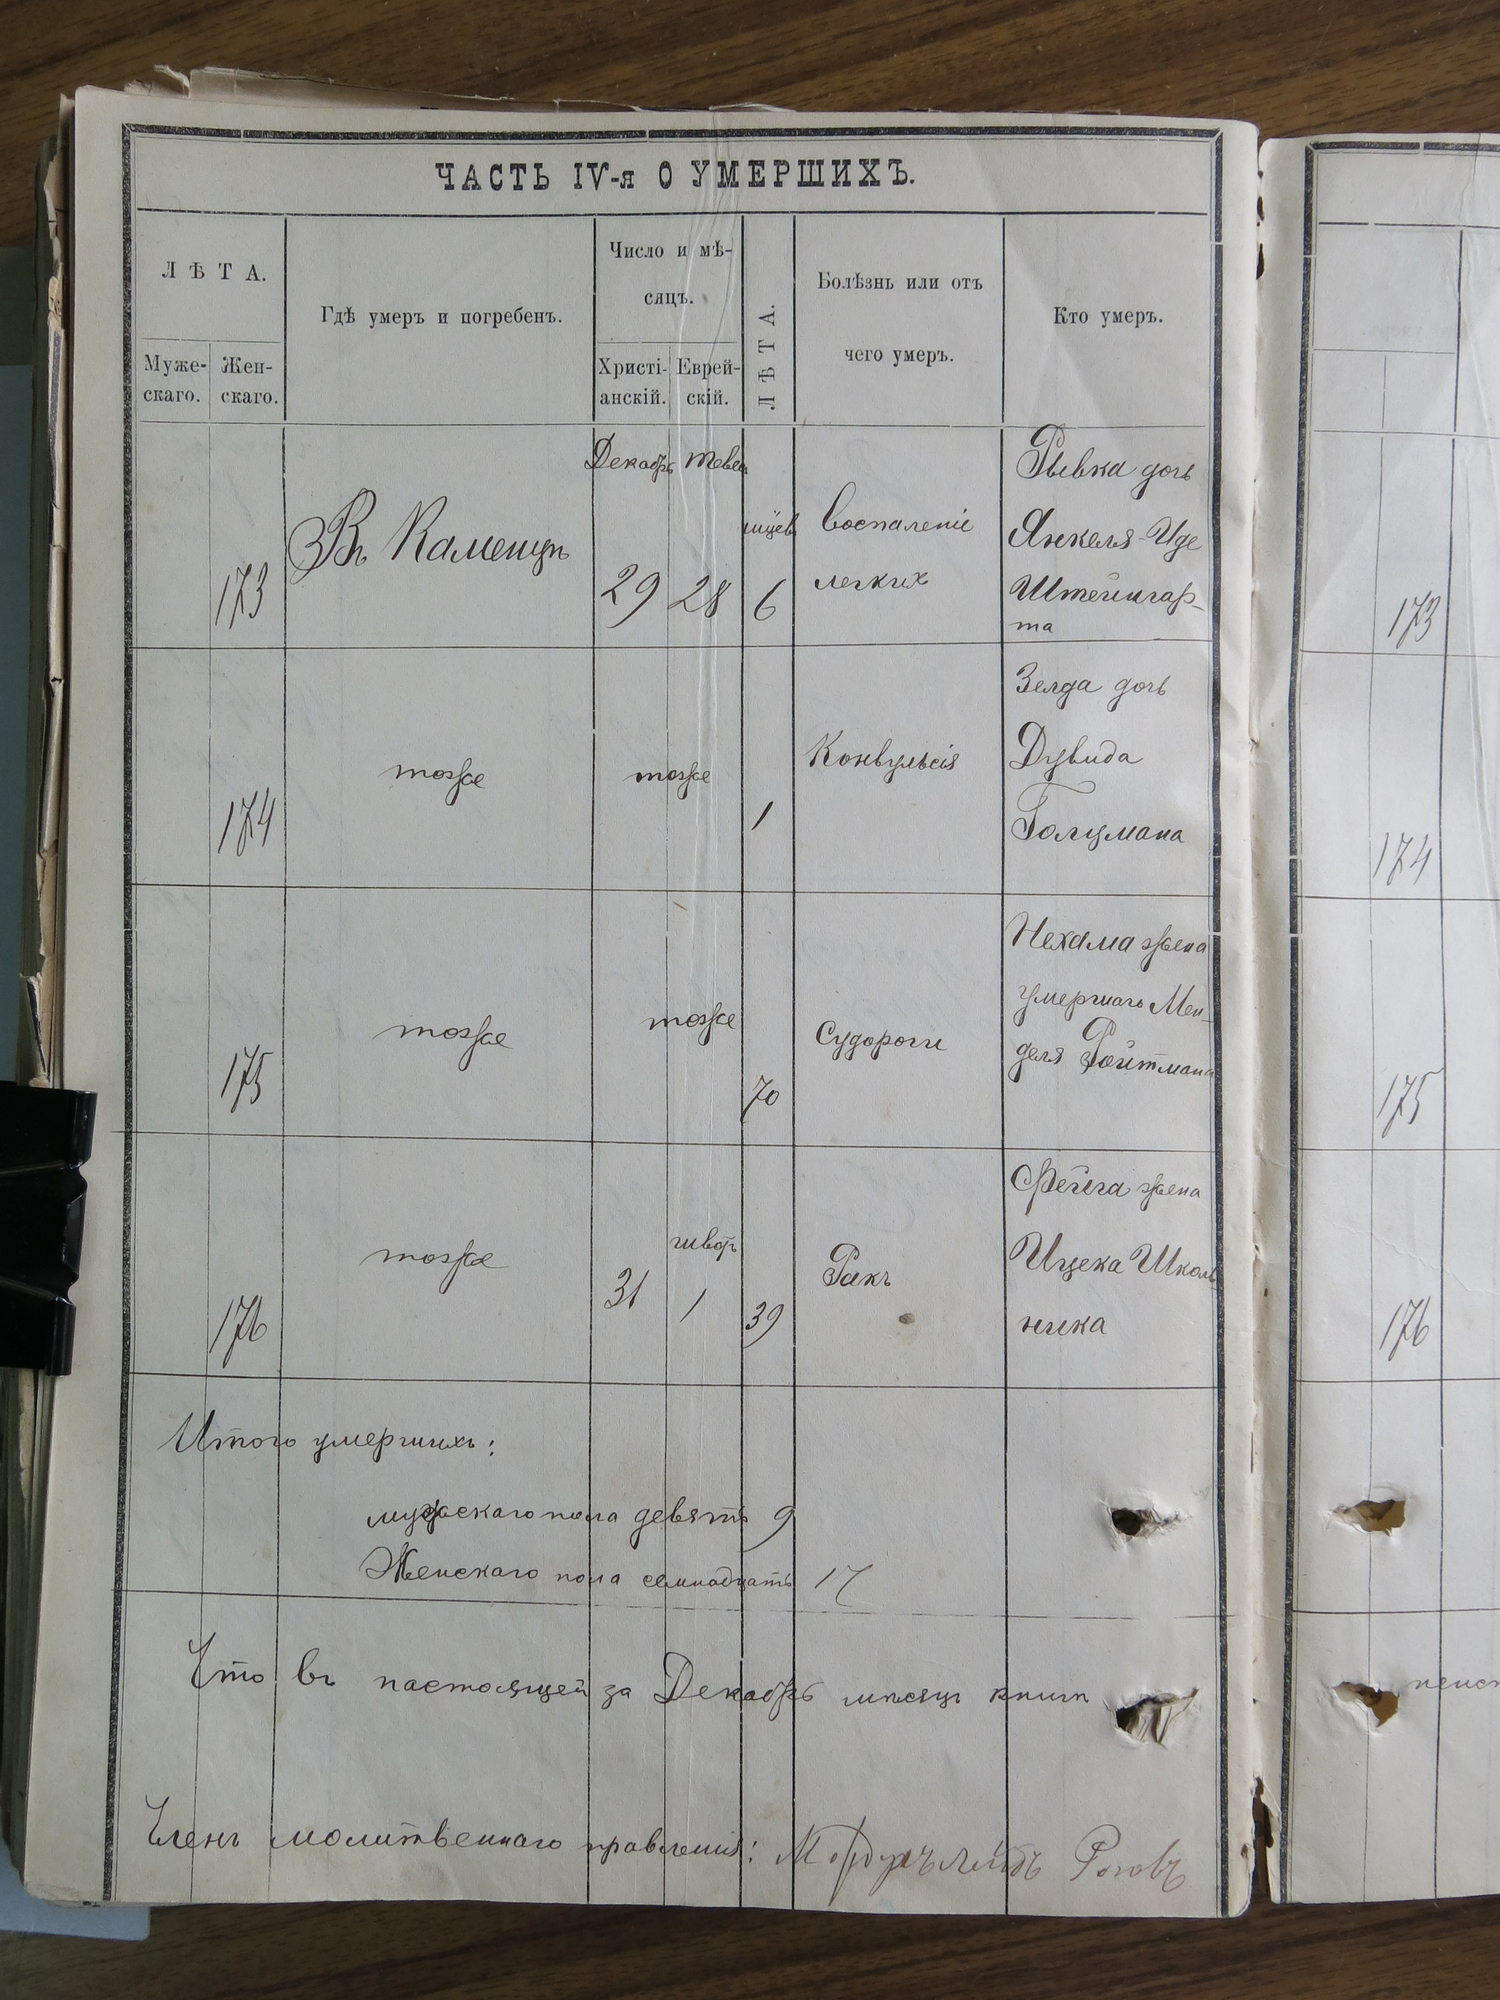 ЧАСТЬ IV-я О УМЕРШИХЪ.
ЛѢТА.
Муже-
скаго.
Жен-
скаго.
Гдѣ умеръ и погребенъ.
Число и мѣ-
сяцъ.
Христі-
анскій.
Еврей-
скій.
ЛѢТА.
Болѣзнь или отъ
чего умеръ.
Кто умеръ.
173
Въ Каменцѣ
Декабрь
29
28
6
Воспаленіе
легкихъ
Рывка дочь
Янкеля-Иде
Штейнгар-
та
173
174
тоже
тоже
1
Конвульсія
Зелда дочь
Дувида
Голцмана
174
175
тоже
тоже
70
Судороги
Нехама жена
умершаго Мен-
деля Ройтмана
175
176
тоже
31
1
39
Ракъ
Фейга жена
Ицека Школь
ника
176
Итого умершихъ:
мужскаго пола девять 9
Женскаго пола семнадцать 17
Что въ настоящей за Декабрь мѣсяцъ книги
Членъ молитвеннаго правленія: